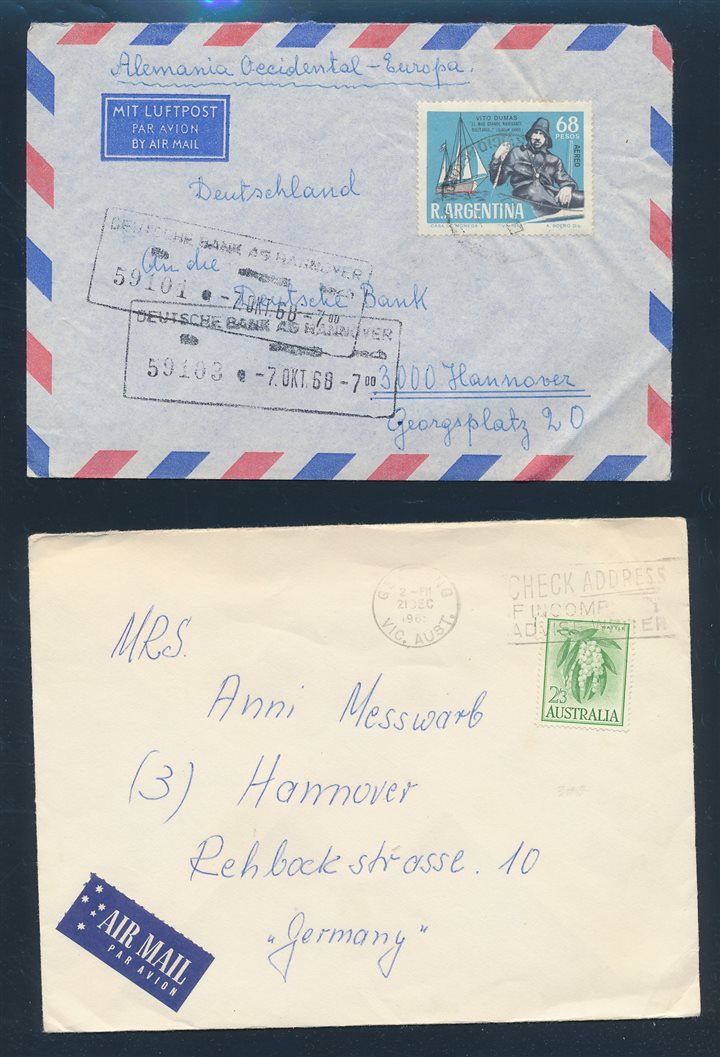 Alemania Occidental - Europa.
MIT LUFTPOST
PAR AVION
BY AIR MAIL
VITO DUMAS
"EL MAS GRANDE NAVEGANTE
SOLITARIO."
68
PESOS
AEREO
R. ARGENTINA
CASA DE MONEDA
Deutschland
DEUTSCHE BANK AG HANNOVER
An die
59101 -7.OKT.68-7⁰⁰
Deutsche Bank
DEUTSCHE BANK AG HANNOVER
59103 -7.OKT.68-7⁰⁰
3000 Hannover
Georgsplatz 20
2-PM
21DEC
196
VIC. AUST.
CHECK ADDRESS
IF INCOMP
AD
WATTLE
2/3
AUSTRALIA
MRS.
Anni Messwarb
(3) Hannover
Rehbockstrasse. 10
„Germany"
AIR MAIL
PAR AVION